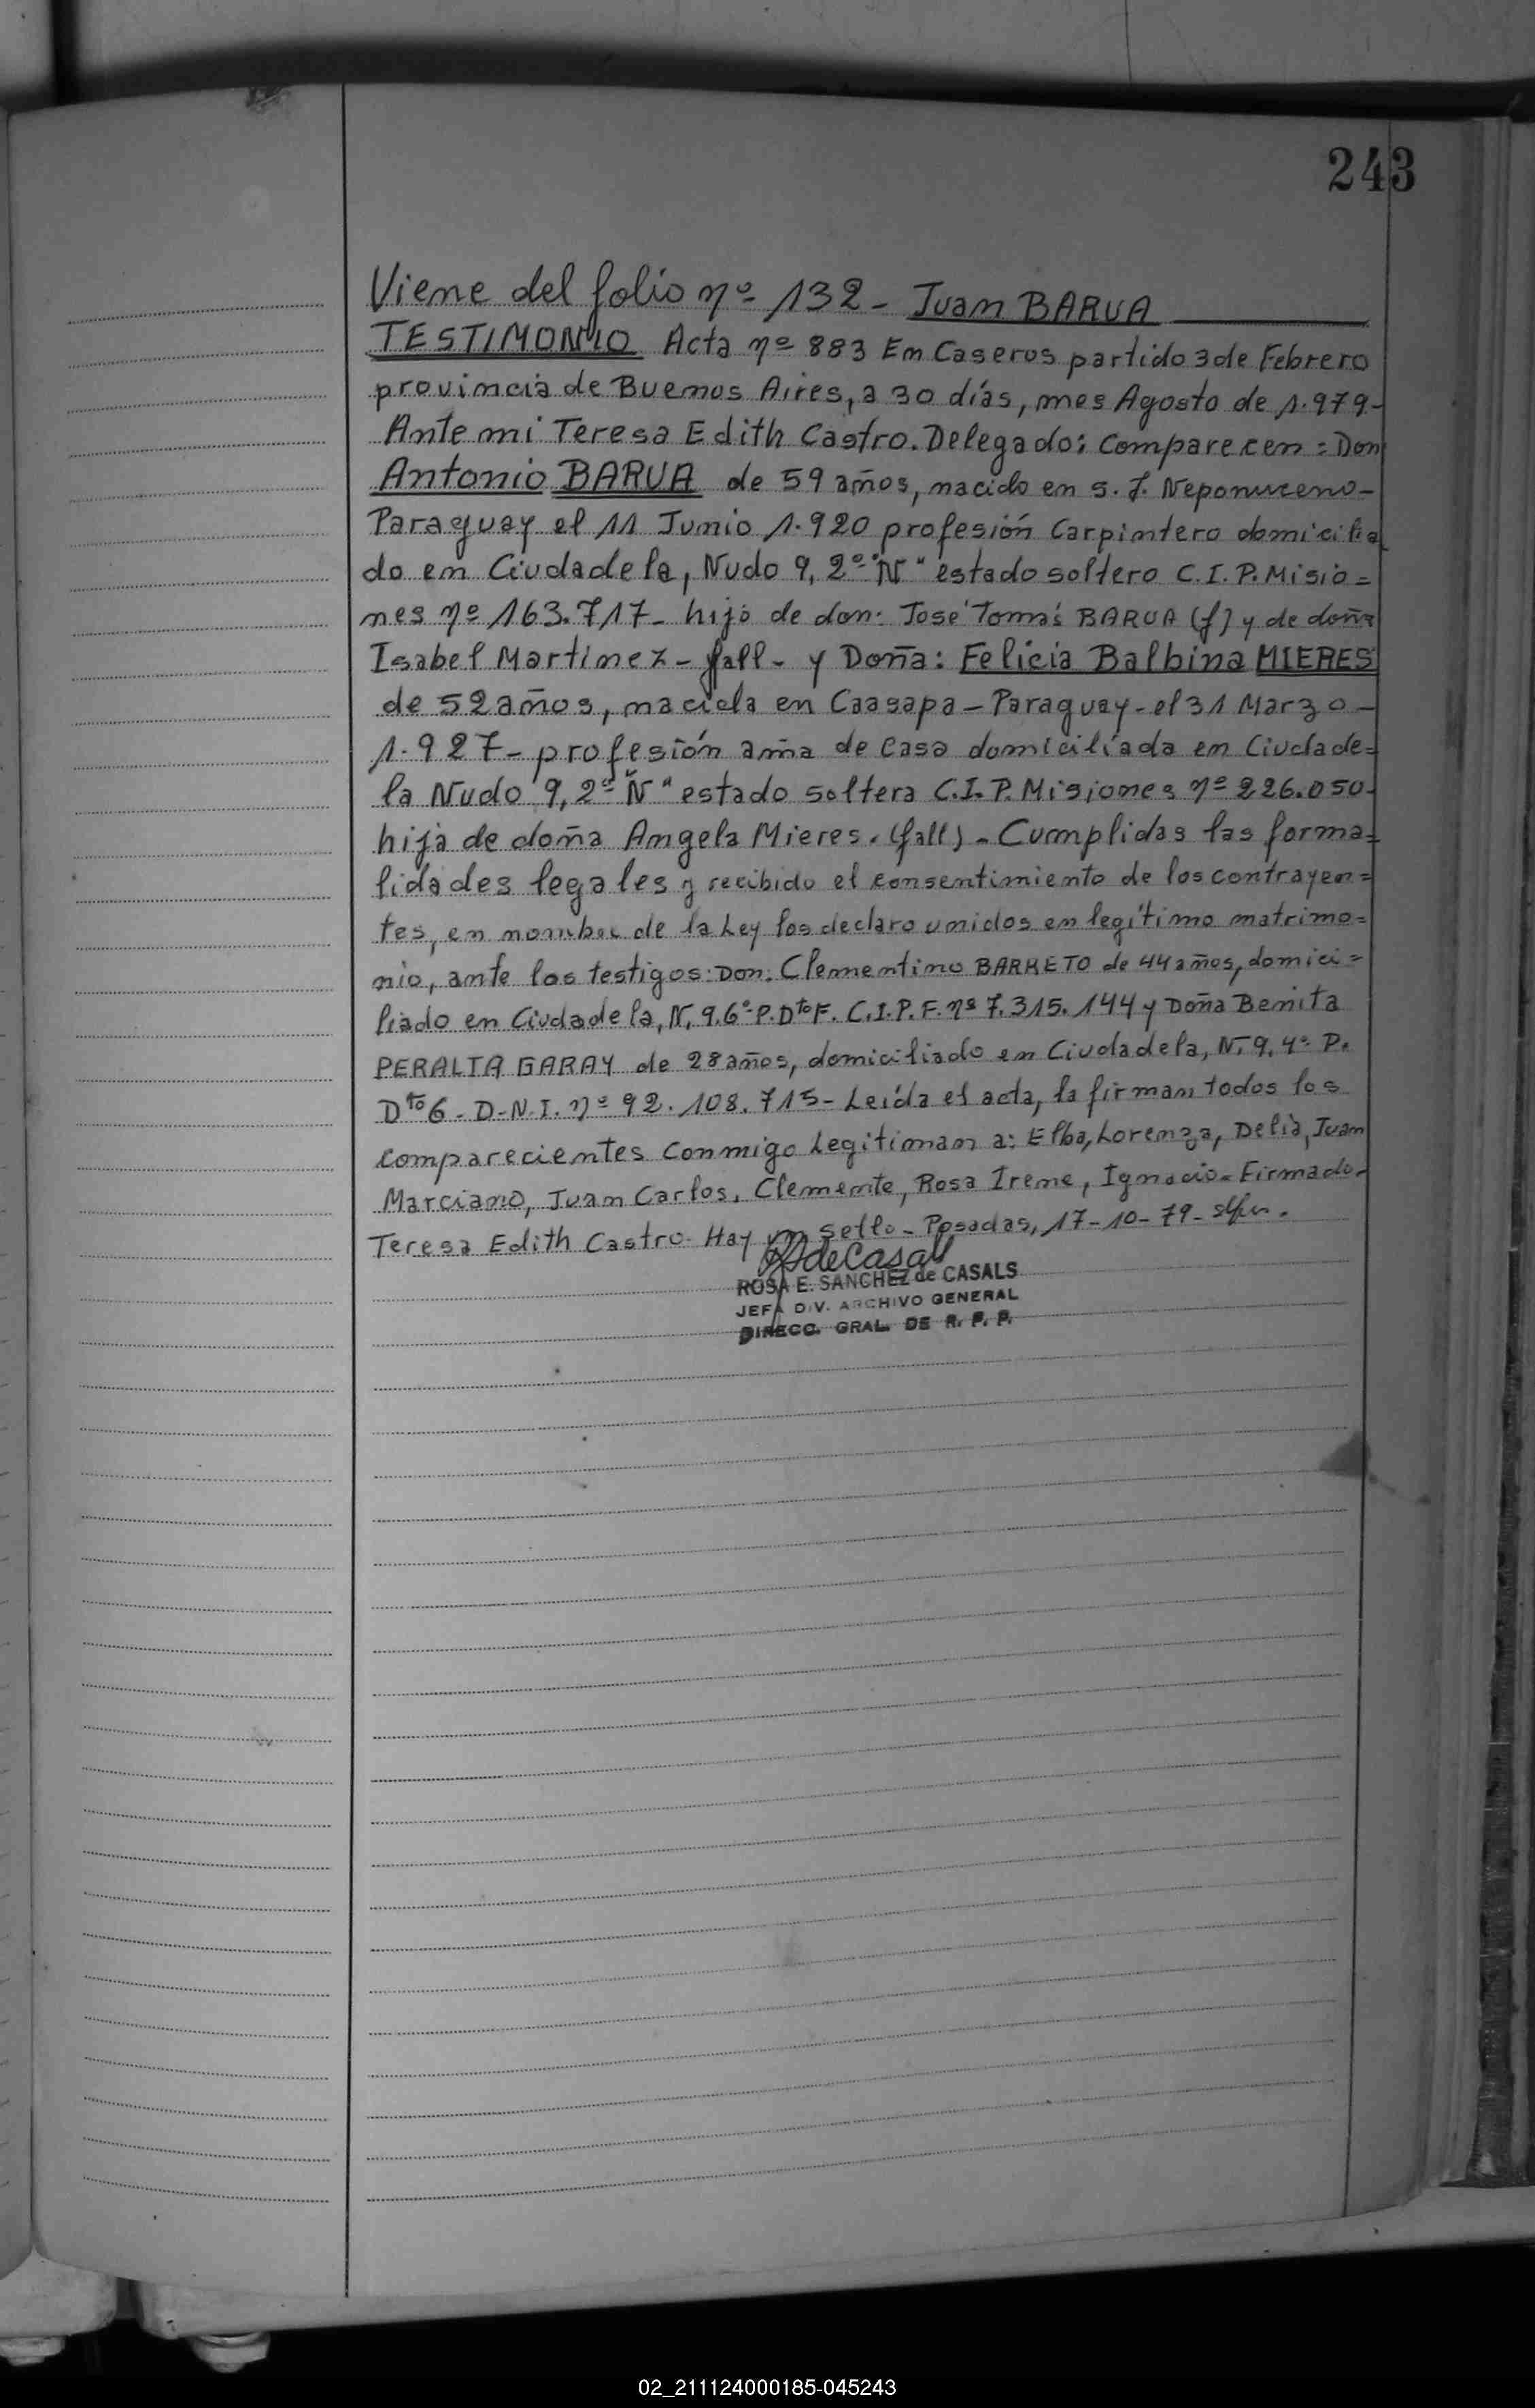 243
Viene del folio nº 132 - Juan BARUA
TESTIMONIO Acta nº 883 En Caseros partido 3 de Febrero
provincia de Buenos Aires, a 30 días, mes Agosto de 1.979-
Ante mi Teresa Edith Castro. Delegado; Comparecen = Don
Antonio BARUA de 59 años, nacido en S. J. Nepomuceno-
Paraguay el 11 Junio 1.920 profesión Carpintero domicilia
do en Ciudadela, Nudo 9, 2º "N" estado soltero C.I.P. Misio=
nes nº 163.717- hijo de don: José Tomás BARUA (f) y de doña
Isabel Martinez - fall - y Doña: Felicia Balbina MIERES
de 52 años, nacida en Caasapa - Paraguay - el 31 Marzo -
1.927 - profesión ama de casa domiciliada en Ciudade=
la Nudo 9, 2º "N" estado soltera C.I.P. Misiones nº 226.050-
hija de doña Angela Mieres. (fall) - Cumplidas las forma=
lidades legales y recibido el consentimiento de los contrayen=
tes, en nombre de la Ley los declaro unidos en legítimo matrimo=
nio, ante los testigos: Don: Clementino BARRETO de 44 años, domici=
liado en Ciudadela, N. 9. 6º P. Dto F. C.I.P.F. nº 7.315.144 y Doña Benita
PERALTA GARAY de 28 años, domiciliado en Ciudadela, N. 9. 4º P.
Dto 6 - D.N.I. nº 92.108.715 - Leída el acta, la firman todos los
comparecientes conmigo Legitiman a: Elba, Lorenza, Delia, Juan
Marciano, Juan Carlos, Clemente, Rosa Irene, Ignacio = Firmado.
Teresa Edith Castro - Hay un sello - Posadas, 17-10-79-
RS de Casals
ROSA E. SANCHEZ de CASALS
JEFA DIV. ARCHIVO GENERAL
DIRECC. GRAL. DE R. P. P.
02_211124000185-045243